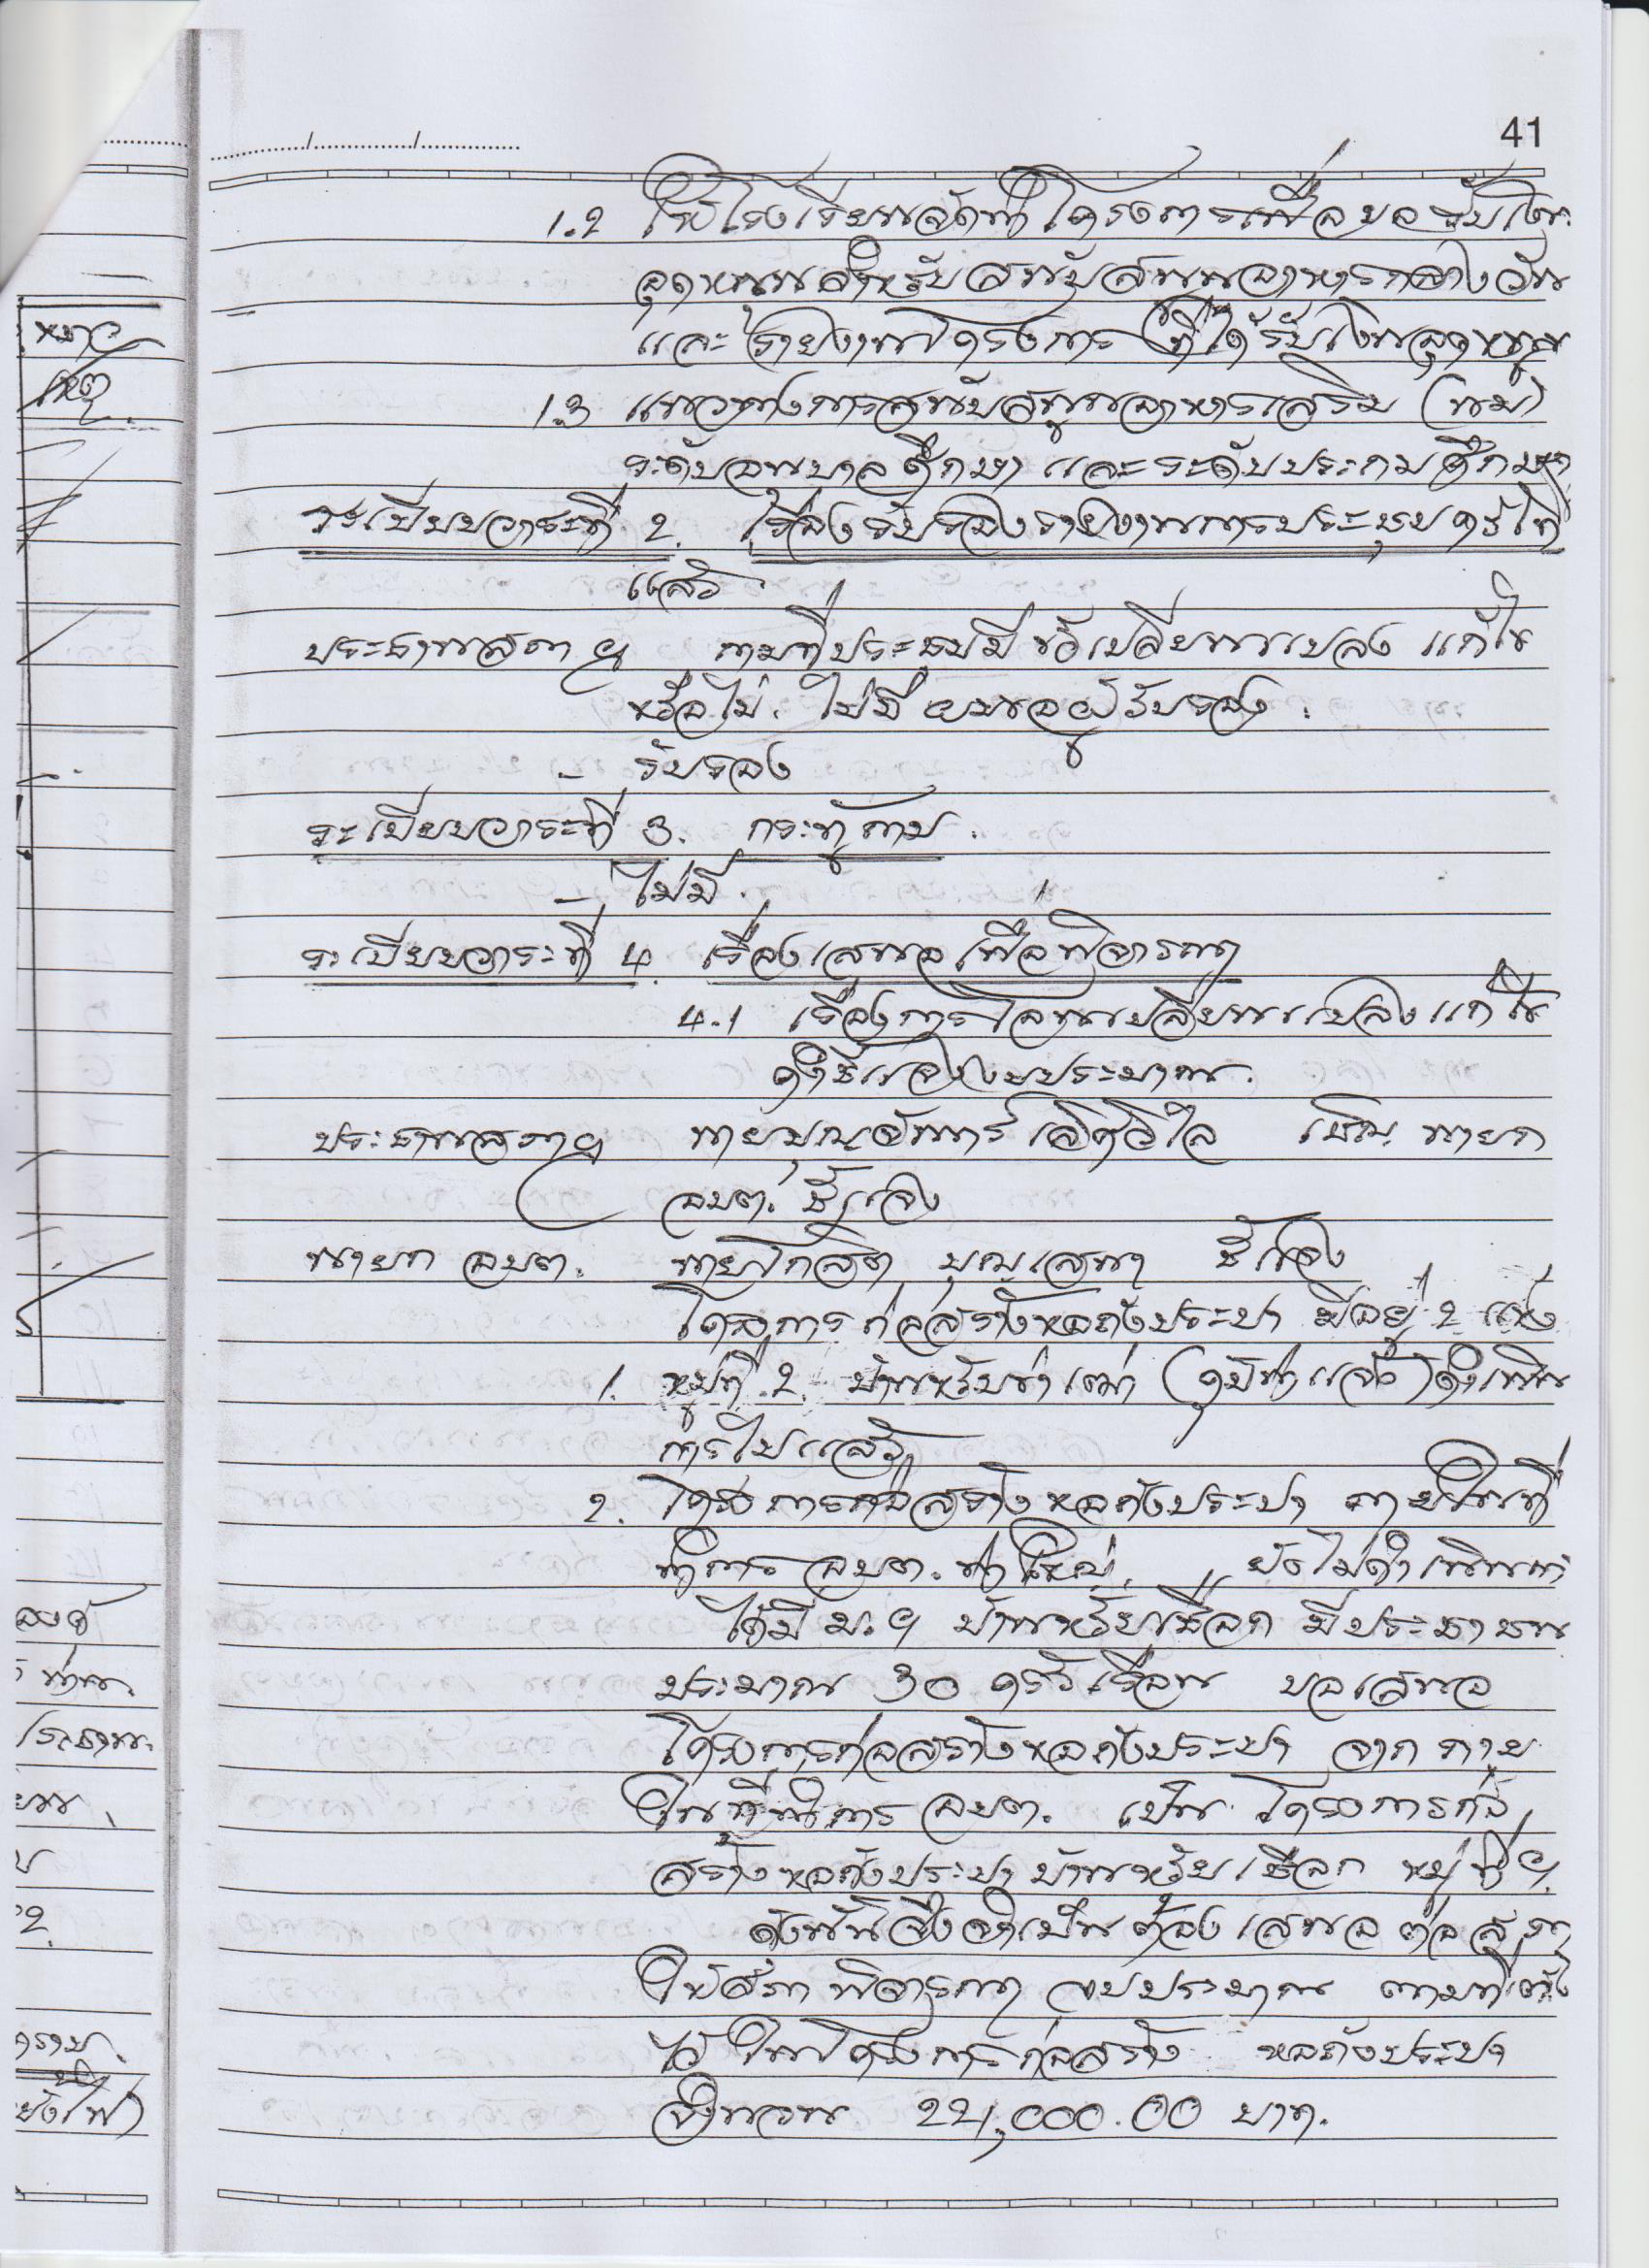 41
1.2 ให้โรงเรียนจัดทำโครงการเพื่อขอรับเงิน
อุดหนุนสำหรับสนับสนุนอาหารกลางวัน
และรายงานโครงการที่ได้รับเงินอุดหนุน
1.3 แนวทางการสนับสนุนอาหารเสริม (นม)
ระดับอนุบาลศึกษา และระดับประถมศึกษา
ระเบียบวาระที่ 2. เรื่องรับรองรายงานการประชุมครั้งที่
แล้ว
ประธานสภาฯ ถามที่ประชุมมีข้อเปลี่ยนแปลง แก้ไข
หรือไม่. ไม่มี ผมขอผู้รับรอง.
- รับรอง
ระเบียบวาระที่ 3. กระทู้ถาม.
- ไม่มี.
ระเบียบวาระที่ 4. เรื่องเสนอเพื่อพิจารณา
4.1 เรื่องการโอนเปลี่ยนแปลงแก้ไข
คำชี้แจงงบประมาณ.
ประธานสภาฯ นายบุญจันทร์ เชิญ นายก
อบต. ชี้แจง
นายก อบต. นายโกสิต บุญเสนา ชี้แจง
โครงการก่อสร้างหอถังประปา มีอยู่ 2 แห่ง
1. หมู่ที่ 2. บ้าน ดำเนิน
การไปแล้ว
2. โครงการก่อสร้างหอถังประปา ภายในที่
ทำการ อบต. ยังไม่ดำเนินการ
ได้มี ม. 9 บ้านห้วยเชือก มีประชาชน
ประมาณ 30 ครัวเรือน ขอเสนอ
โครงการก่อสร้างหอถังประปา จาก ภาย
ในที่ทำการ อบต. เป็น โครงการก่อ
สร้างหอถังประปาบ้านห้วยเชือก หมู่ที่ 9.
ดังนั้นจึงจำเป็นต้องเสนอต่อสภา
ให้สภาพิจารณา งบประมาณ ตามที่ตั้ง
ไว้ในโครงการก่อสร้าง หอถังประปา
จำนวน 221,000.00 บาท.
หมาย
เหตุ